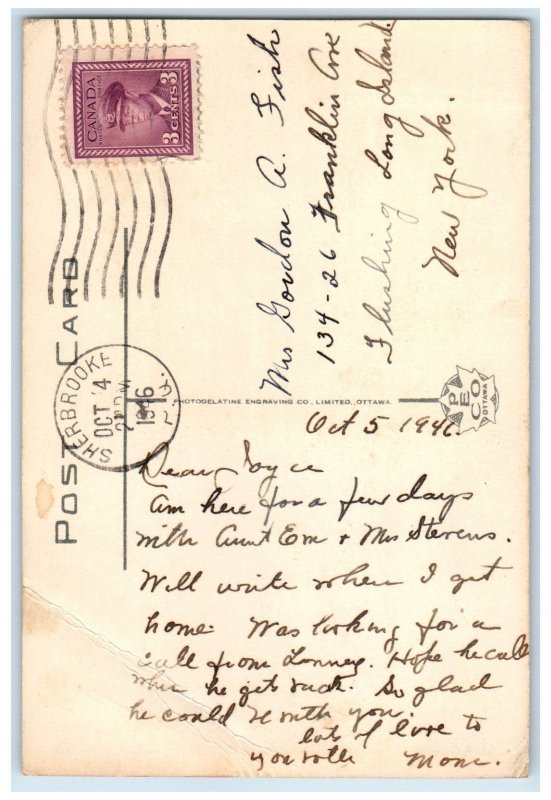 CANADA
POSTES POSTAGE
3 CENTS 3
SHERBROOKE
OCT 4
PM
1946
P.Q.
POST CARD
Mrs Gordon A. Fish
134-26 Franklin Ave
Flushing Long Island
New York.
PHOTOGELATINE ENGRAVING CO., LIMITED, OTTAWA.
PECO
OTTAWA
Oct 5 1946.
Dear Joyce
Am here for a few days
with Aunt Em + Mrs Stevens.
Will write when I get
home. Was looking for a
call from Lonney. Hope he calls
when he gets back. So glad
he could be with you.
lots of love to
you both Mom.